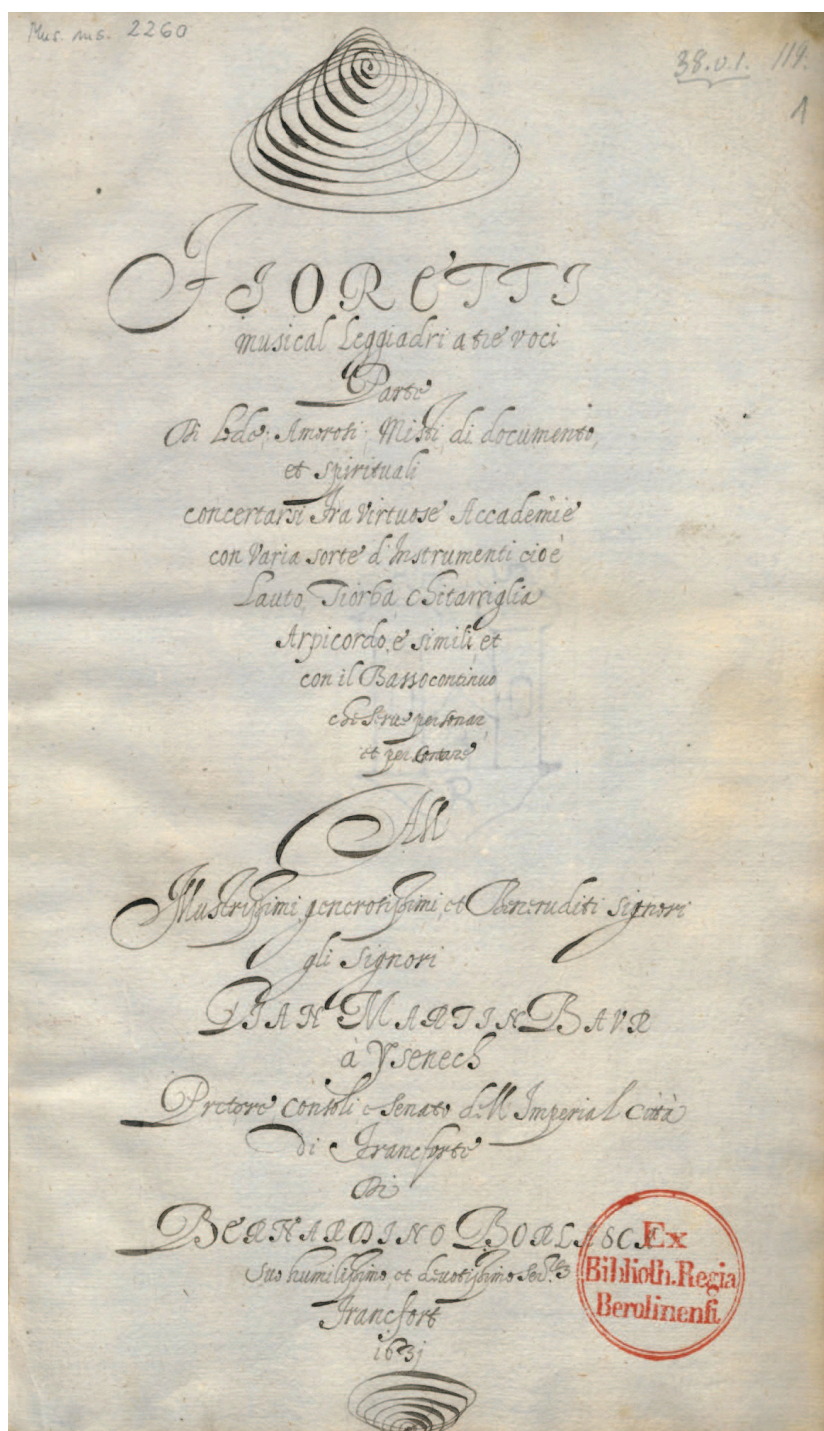 Mus. ms. 2260
38.v.1. 119.
1
FIORETTI
musical Leggiadri a tre voci
Parte
Di Lode, Amorosi, Misti, di documento,
et spirituali
concertarsi fra virtuose Accademie
con Varia sorte d'Instrumenti cioè
Lauto, Tiorba, Chitarriglia
Arpicordo, e simili, et
con il Basso continuo
che serve per sonar
et per cantare
All
Illustrissimi generosissimi, et Beneruditi signori
gli Signori
GIAN MARTIN BAUR
à Ysenech
Pretore Consoli e Senato dell Imperial Città
di Francforte
Di
BERNARDINO BORLASCA
Suo humilissimo, et devotissimo
Francfort
1631
Ex
Biblioth. Regia
Berolinensi